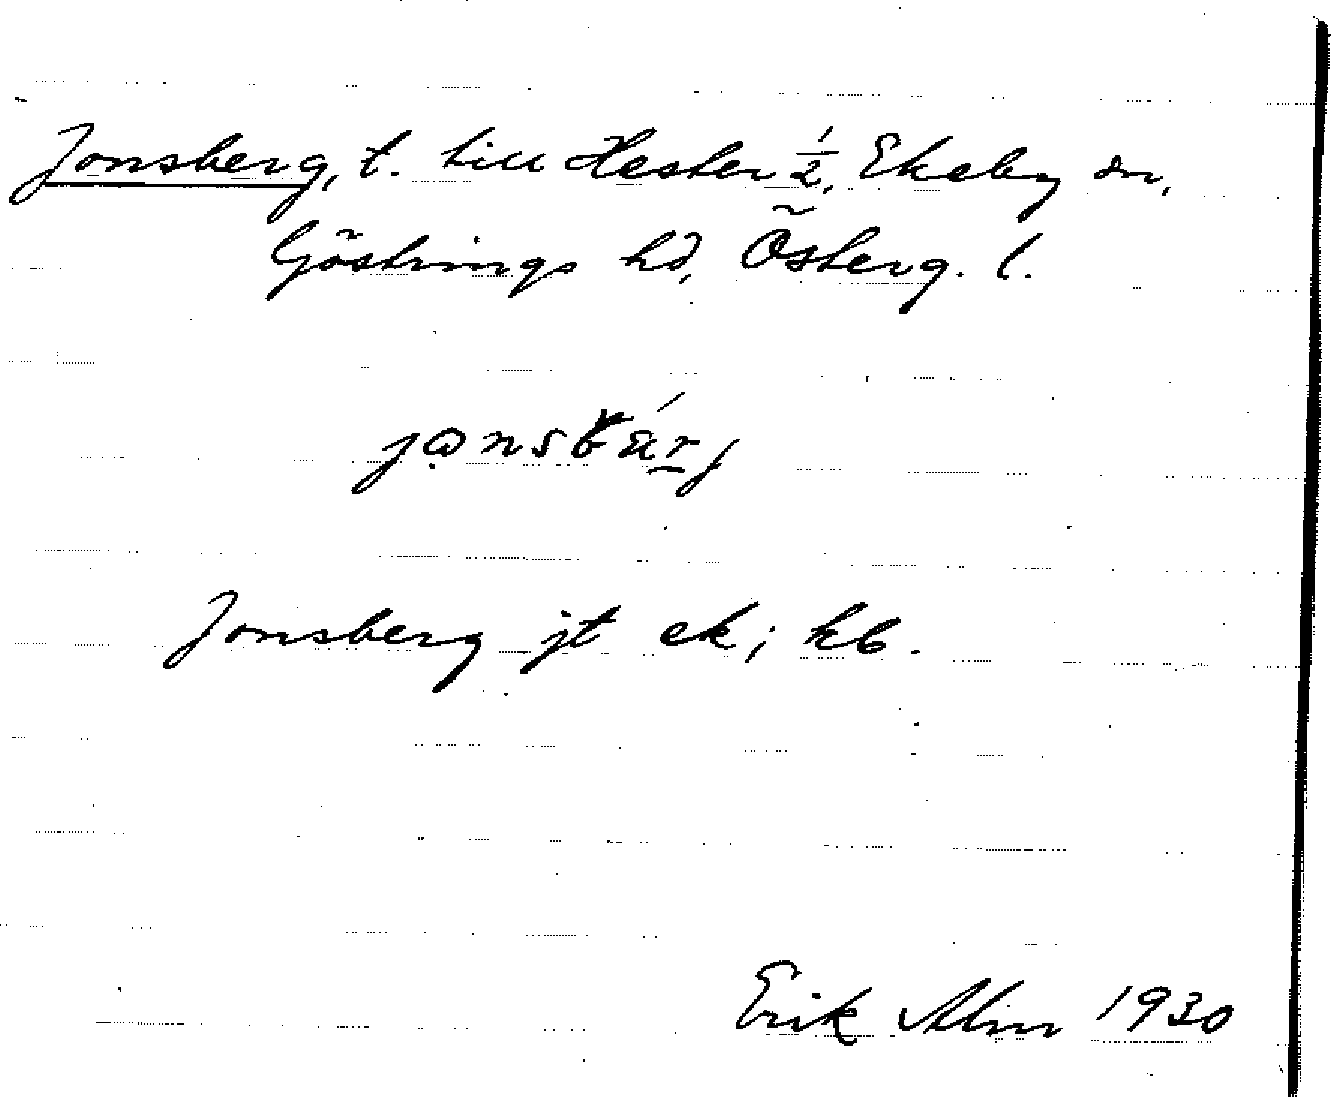 Jonsberg, t. till Hester 1/2, Ekeby sn,
Göstrings hd, Österg. l.
Jonsberg jt ek; kb.
Erik Alm 1930